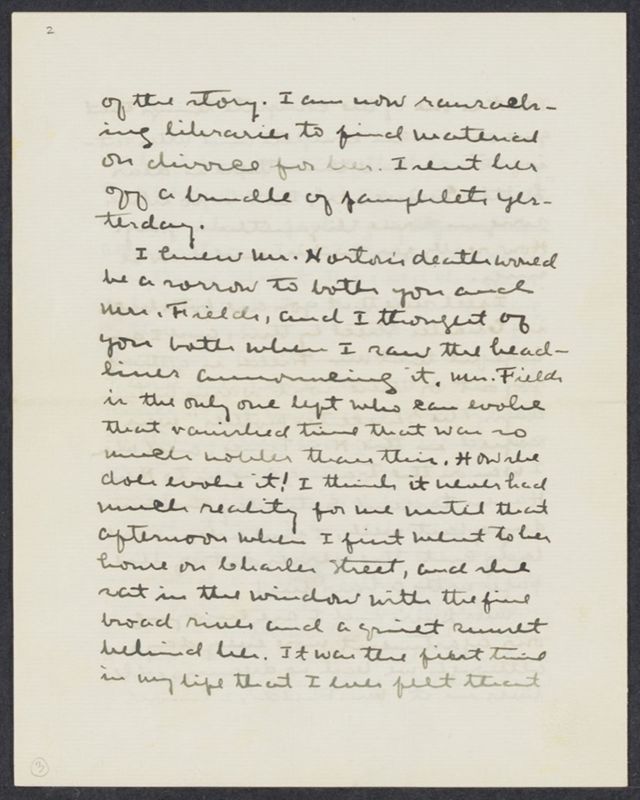 2
of the story. I am now ransack-
ing libraries to find material
on divorce for her. I sent her
off a bundle of pamphlets yes-
terday.
I knew Mr. Norton's death would
be a sorrow to both you and
Mrs. Fields, and I thought of
you both when I saw the head-
lines announcing it. Mrs. Fields
is the only one left who can evoke
that vanished time that was so
much nobler than this. How she
does evoke it! I think it never had
much reality for me until that
afternoon when I first went to her
house on Charles Street, and she
sat in the window with the fine
broad river and a quiet sunset
behind her. It was the first time
in my life that I ever felt that
3